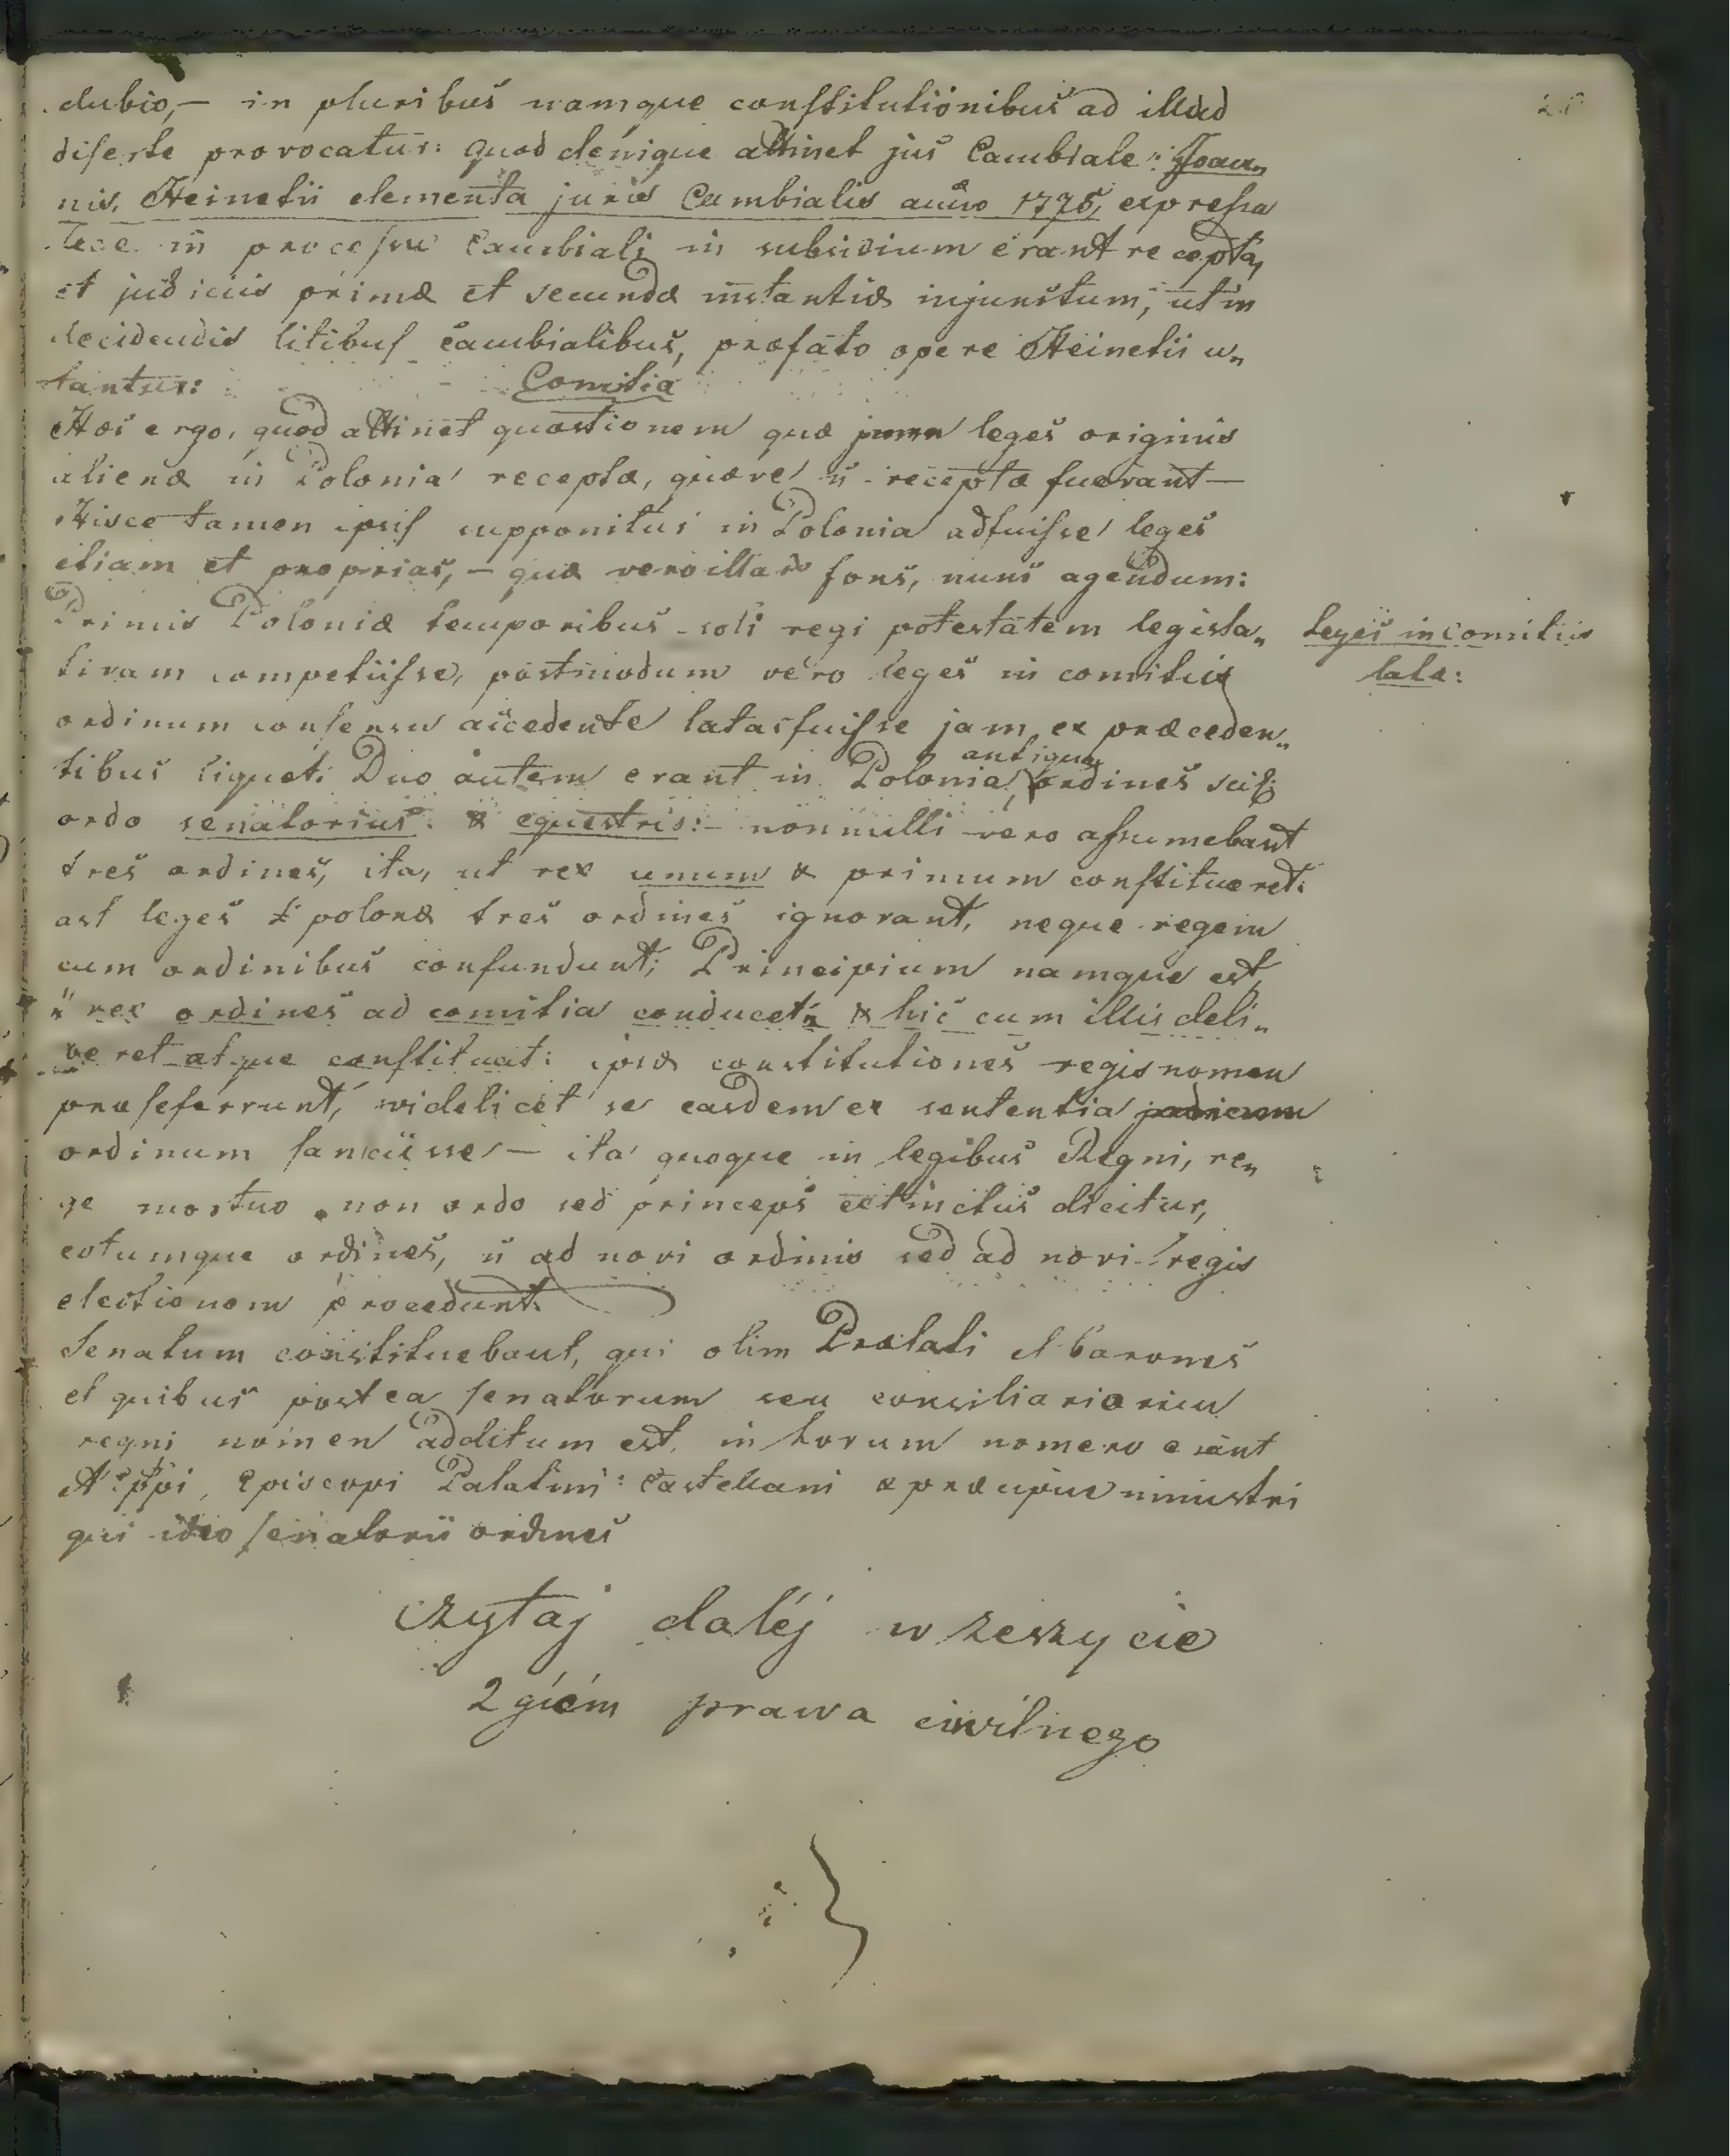 dubio, — in pluribus namque constitutionibus ad illud
diserte provocatur: quod denique attinet jus Cambiale: Joan„
nis Heinetii elementa juris Cambialis anno 1775, expressa
lege in processu Cambiali in subsidium erant recepta,
et judiciis primæ et secundæ instantiæ injunctum, ut in
decidendis litibus cambialibus, præfato opere Heinetii u„
tantur:
Comitia
Hæc ergo, quod attinet quæstionem quæ leges originis
alienæ in Polonia receptæ, quæve n̄ receptæ fuerant —
Hisce tamen ipsis supponitur in Polonia adfuisse leges
etiam et proprias, — quæ vero illarū fons, nunc agendum:
Primis Poloniæ temporibus soli regi potestatem legisla„
tivam competiisse, postmodum vero leges in comitiis
ordinum consensu accedente latas fuisse jam ex præceden„
tibus liquet. Duo autem erant in Polonia antiqua ordines scil:
ordo senatorius & equestris: — nonnulli vero assumebant
tres ordines, ita, ut rex unum & primum constitueret:
ast leges polonæ tres ordines ignorant, neque regem
cum ordinibus confundunt; Principium namque est,
„ rex ordines ad comitia conducet & hic cum illis deli„
beret atque constituat: ipsæ constitutiones regis nomen
præseferrunt, videlicet se easdem ex sententia judicum
ordinum sanciisse — ita quoque in legibus Regni, re„
ge mortuo non ordo sed princeps extinctus dicitur,
totumque ordines, n̄ ad novi ordinis sed ad novi regis
electionem procedunt.
Senatum constituebant, qui olim Prælati et barones
et quibus postea senatorum seu consiliariorum
regni nomen additum est, in horum nomero erant
A. Eppi, Episcopi Palatini: Castellani & præcipue ministri
qui ideo senatorii ordines
Leges in comitiis
latæ:
czytaj daléj w zeszycie
2giém prawa ciwilnego